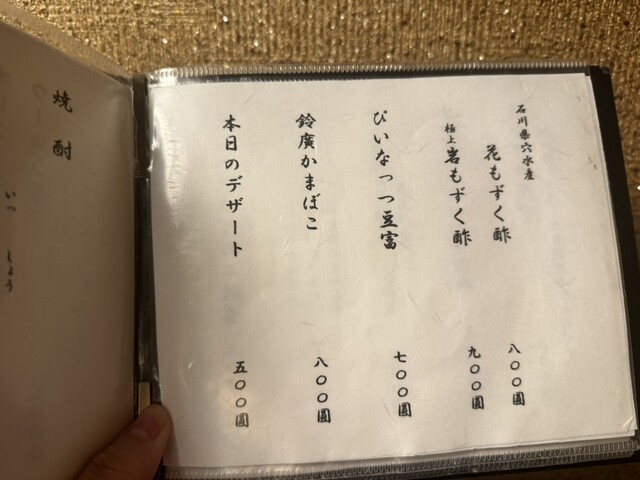 石川県穴水産
花もずく酢
八〇〇圓
極上岩もずく酢
九〇〇圓
ぴいなっつ豆富
七〇〇圓
鈴廣かまぼこ
八〇〇圓
本日のデザート
五〇〇圓
焼酎
いっ
しょう